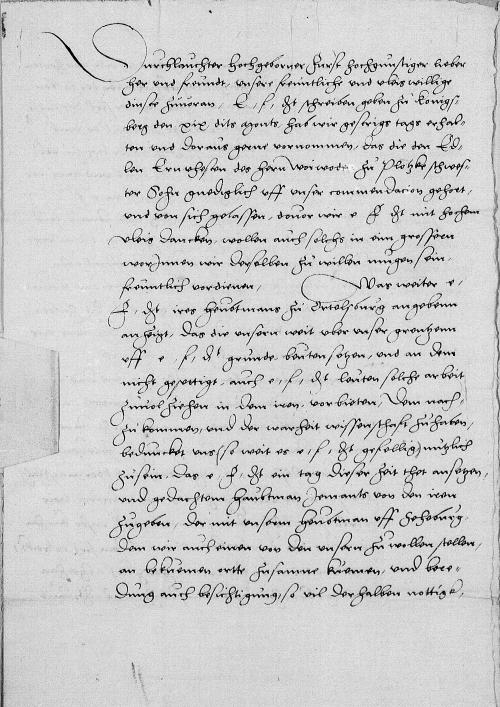 Durchlauchter hochgeborner Furst hochgunstiger lieber
her und freundt, unsere freuntliche und vleis willige
dinste zuvoran, E. f. dt schreiben geben zu Konigs-
berg den xix dits monts, hab wir gestrigs tags erhal-
ten und daraus gerne vornommen, das die den Ed-
len Ern des hern Woiwoden zu Plotzke schwes-
ter Sohn gnediglich uff unser commendacion gehort,
und von sich gelassen, dovor wir e f dt mit hochem
vleis dancken, wollen auch solchs in eim grossern
worinnen wir derselben zu willen mugen sein,
freuntlich vordienen, Was weiter e,
f, dt ires heubtmans zu Ortelsburg angebenn
anzeigt, das die unsern weit uber unser grentzenn
uff e, f, dt grunde beuten setzen, und an dem
nicht gesettigt, auch e, f, dt leuten solche arbeit
zuvolziehen in dem iren, vorbieten, Dem nach-
zukommen, und der warheit wissenschaft zuhaben,
beduncket uns (so weit es e, f, dt gefellig) nutzlich
zusein, das e f, dt ein tag dieser zeit thet ansetzen,
und gedachtem haubtman jemants von den iren
zugeben, der mit unserm heubtman uff Seheburg,
dem wir auch einen von den unsern zu wollen stellen,
an bekuemen ortte zusamne kuemen, und bere-
dung auch besichtigung, so vil derhalben nottigk,